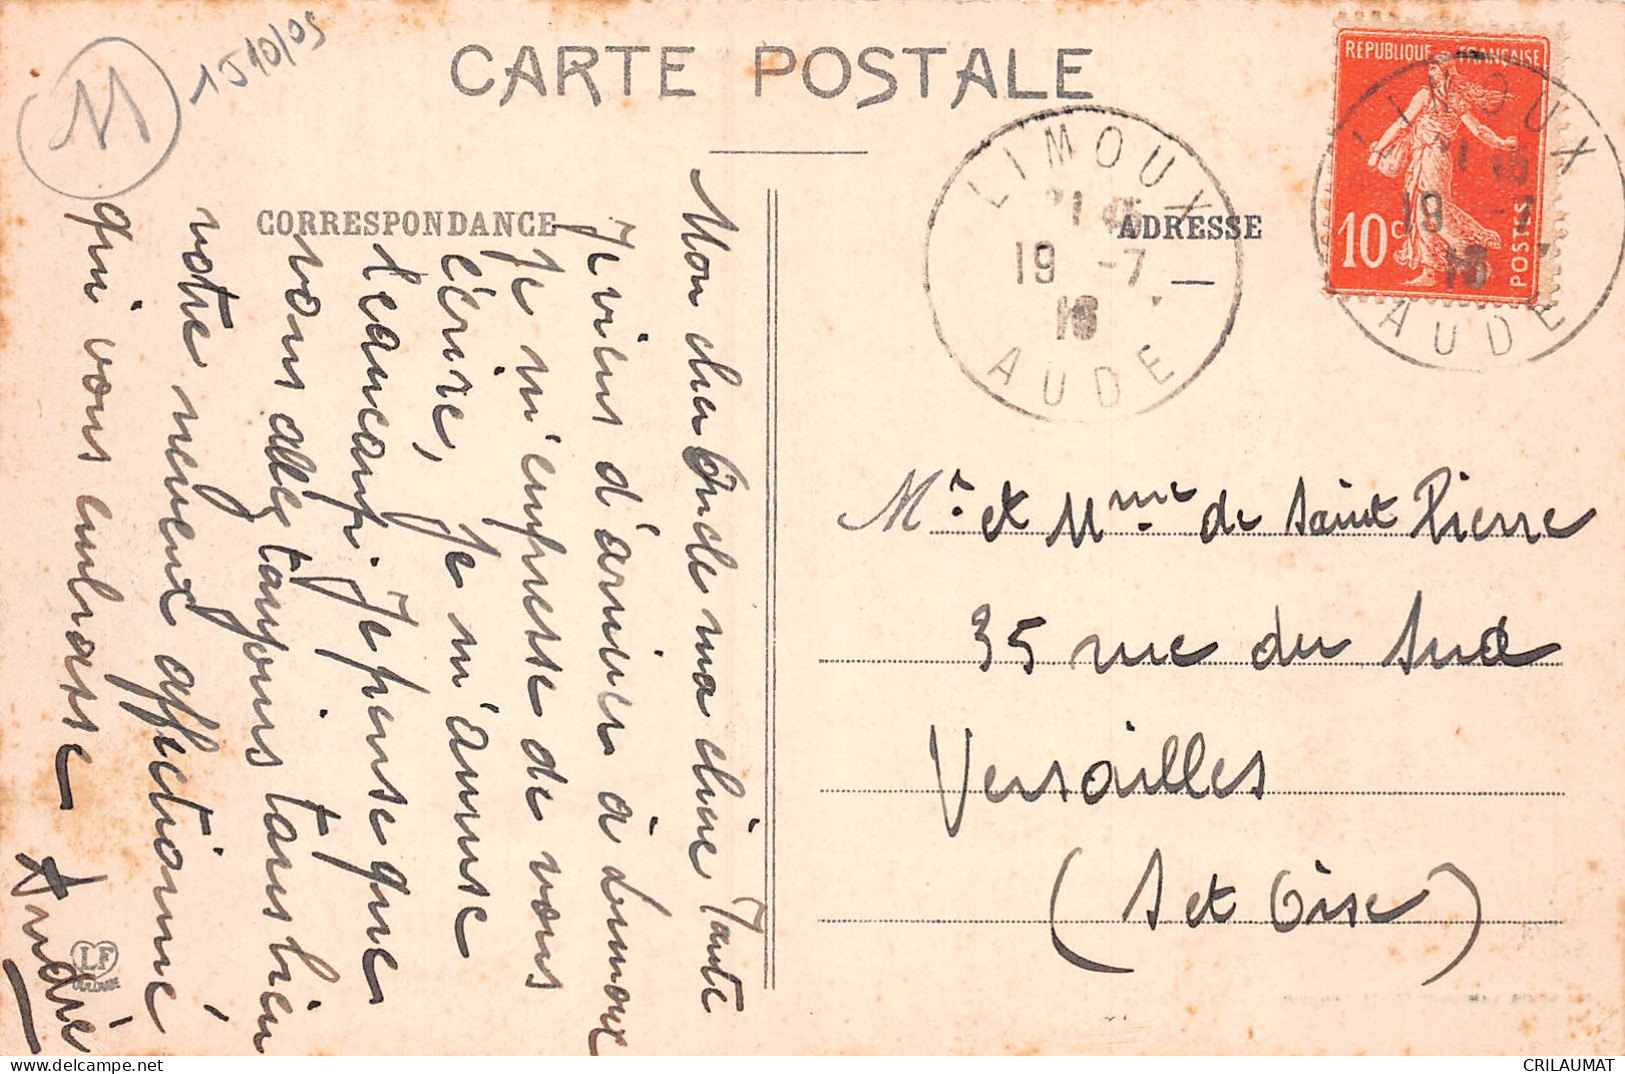 CARTE POSTALE
CORRESPONDANCE
ADRESSE
Mon cher Oncle ma chère Tante
Je viens d'arriver à Limoux
Je m'empresse de vous
l'écrire, Je m'amuse
Je pense que
vous allez toujours tous bien
votre neveux affectionné
qui vous embrasse
André
Mr. et Mme de Saint Pierre
35 rue du Sud
Versailles
(S et Oise)
REPUBLIQUE FRANÇAISE
10c
POSTES
LIMOUX
19 -7
AUDE
LIMOUX
19 -7
AUDE
M
LF
CRILAUMAT